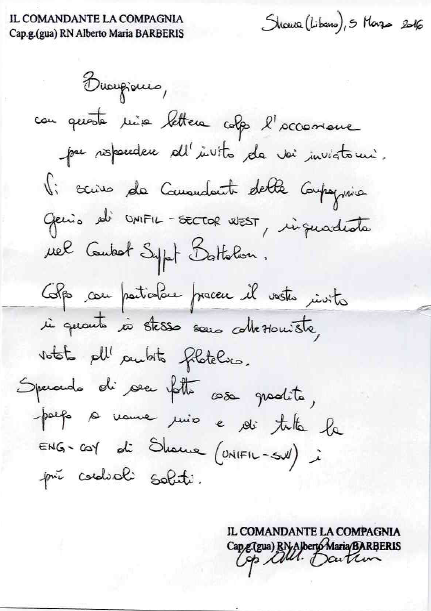 IL COMANDANTE LA COMPAGNIA
Cap.g.(gua) RN Alberto Maria BARBERIS
Shama (Libano), 5 Marzo 2016
Buongiorno,
con questa mia lettera colgo l'occasione
per rispondere all'invito da voi inviatomi.
Vi scrivo da Comandante della Compagnia
Genio di UNIFIL - SECTOR WEST, inquadrata
nel Combat Support Battalion.
Colgo con particolare piacere il vostro invito
in quanto io stesso sono collezionista,
votato all'ambito filatelico.
Sperando di aver fatto cosa gradita,
porgo a nome mio e di tutta la
ENG-COY di Shama (UNIFIL-SW) i
più cordiali saluti.
IL COMANDANTE LA COMPAGNIA
Cap.g.(gua) RN Alberto Maria BARBERIS